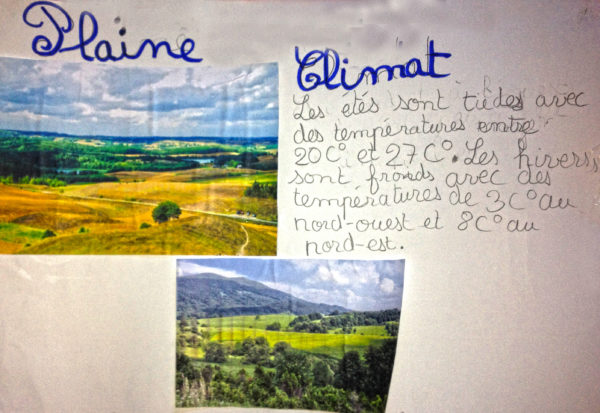 Plaine
Climat
Les etés sont tiédes avec
des températures entre
20C° et 27C°. Les hivers
sont froids avec des
températures de 3C° au
nord-ouest et 8C° au
nord-est.